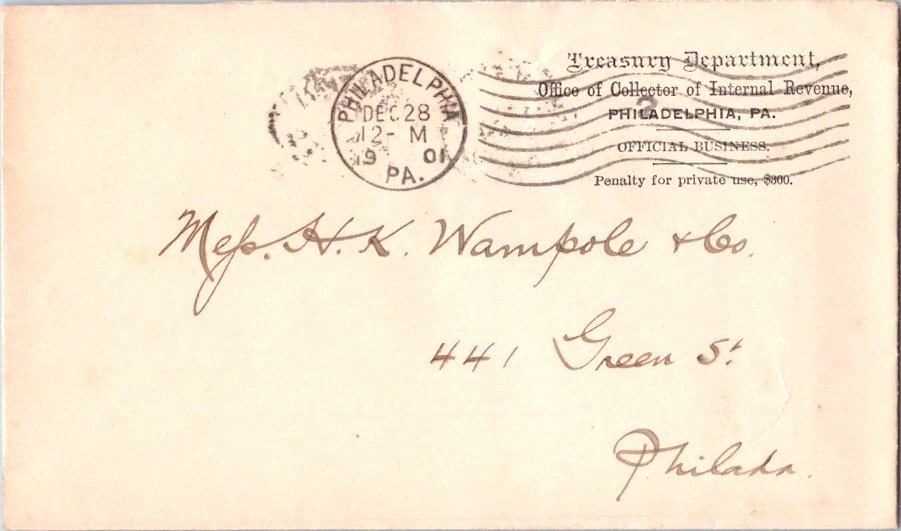 PHILADELPHIA
DEC 28
12- M
19 01
PA.
Treasury Department,
Office of Collector of Internal Revenue,
PHILADELPHIA, PA.
OFFICIAL BUSINESS.
Penalty for private use, $300.
2
Mess. H. K. Wampole & Co.
441 Green St.
Philada.